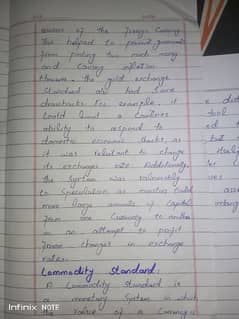 reserves of the foreign Currency
This helped to prevent governments
from printing too much money
and causing inflation.
However, the gold exchange
Standard also had some
drawbacks. For example, it
could limit a countries
ability to respond to
domestic economic shocks, as
it was reluctant to change
its exchange rate. Additionally
the System was vulnerable
to Speculation as investors could
move large amounts of capital
from one Currency to another
in an attempt to profit
from changes in exchange
rates.
Commodity Standard:
A Commodity Standard is
a monetary System in which
the value of a Currency is
Infinix NOTE